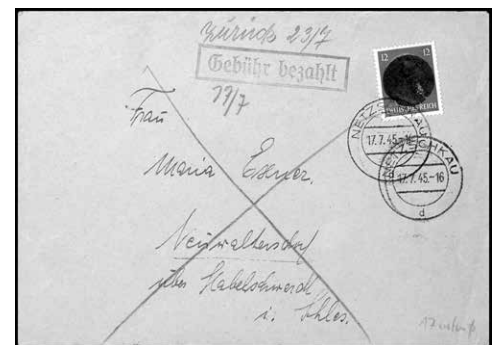 zurück 23/7
Gebühr bezahlt
17/7
12 12
NETZSCHKAU
17.7.45.-16
NETZSCHKAU
17.7.45.-16
d
Frau
Maria
Neuwaltersdorf
über Habelschwerdt
i. Schles.